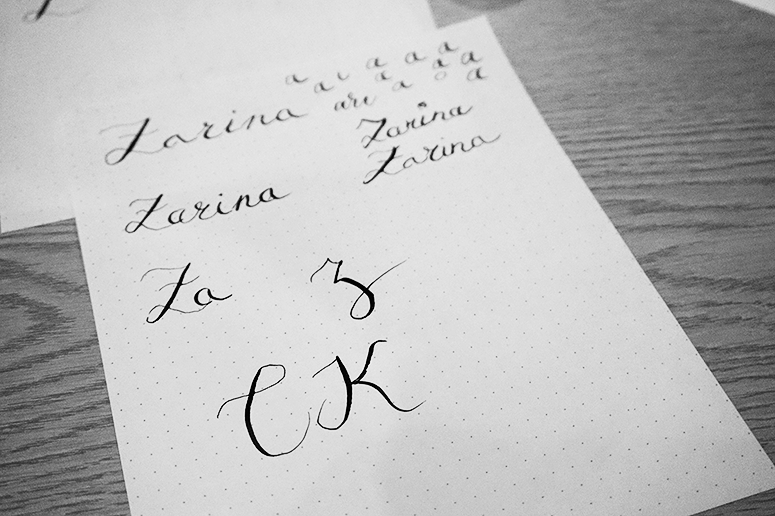 a a a a
a ι a a a
Zarina ari a o a
Zarina
Zarina
Zarina
Za Z
C K